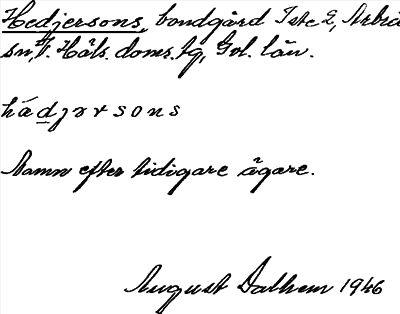 Hedjersons, bondgård Iste 2, Arbrå
sn, V. Häls. doms. bg, Gvl. län.
hädjərsons
Namn efter tidigare ägare.
August Dalhem 1946